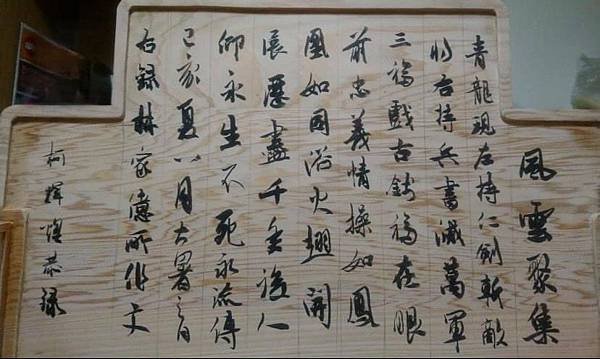 風雲聚集
青龍現左持仁劍斬敵
將右持兵書滅萬軍
三福戲古錢福在眼
前忠義情操如鳳
凰如同浴火翅開
展歷盡千無後人
仰永生不死永流傳
己亥夏八月大暑之日
右錄林家億所作文
柯輝煌恭錄